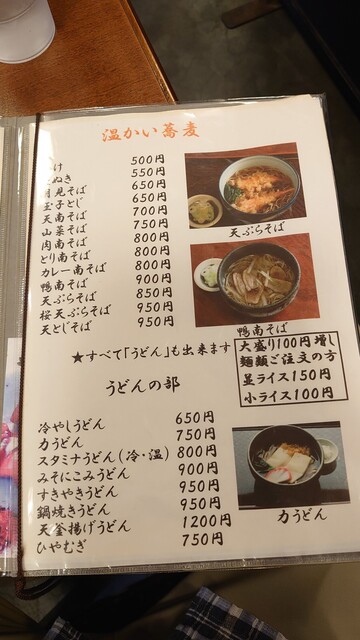 温かい蕎麦
け 500円
ぬき 550円
月見そば 650円
玉子とじ 650円
天南そば 700円
山菜そば 750円
肉南そば 800円
とり南そば 800円
カレー南そば 800円
鴨南そば 900円
天ぷらそば 850円
桜天ぷらそば 950円
天とじそば 950円
天ぷらそば
鴨南そば
★すべて「うどん」も出来ます
大盛り100円増し
麺類ご注文の方
並ライス150円
小ライス100円
うどんの部
冷やしうどん 650円
力うどん 750円
スタミナうどん(冷・温) 800円
みそにこみうどん 900円
すきやきうどん 950円
鍋焼きうどん 950円
天釜揚げうどん 1200円
ひやむぎ 750円
力うどん